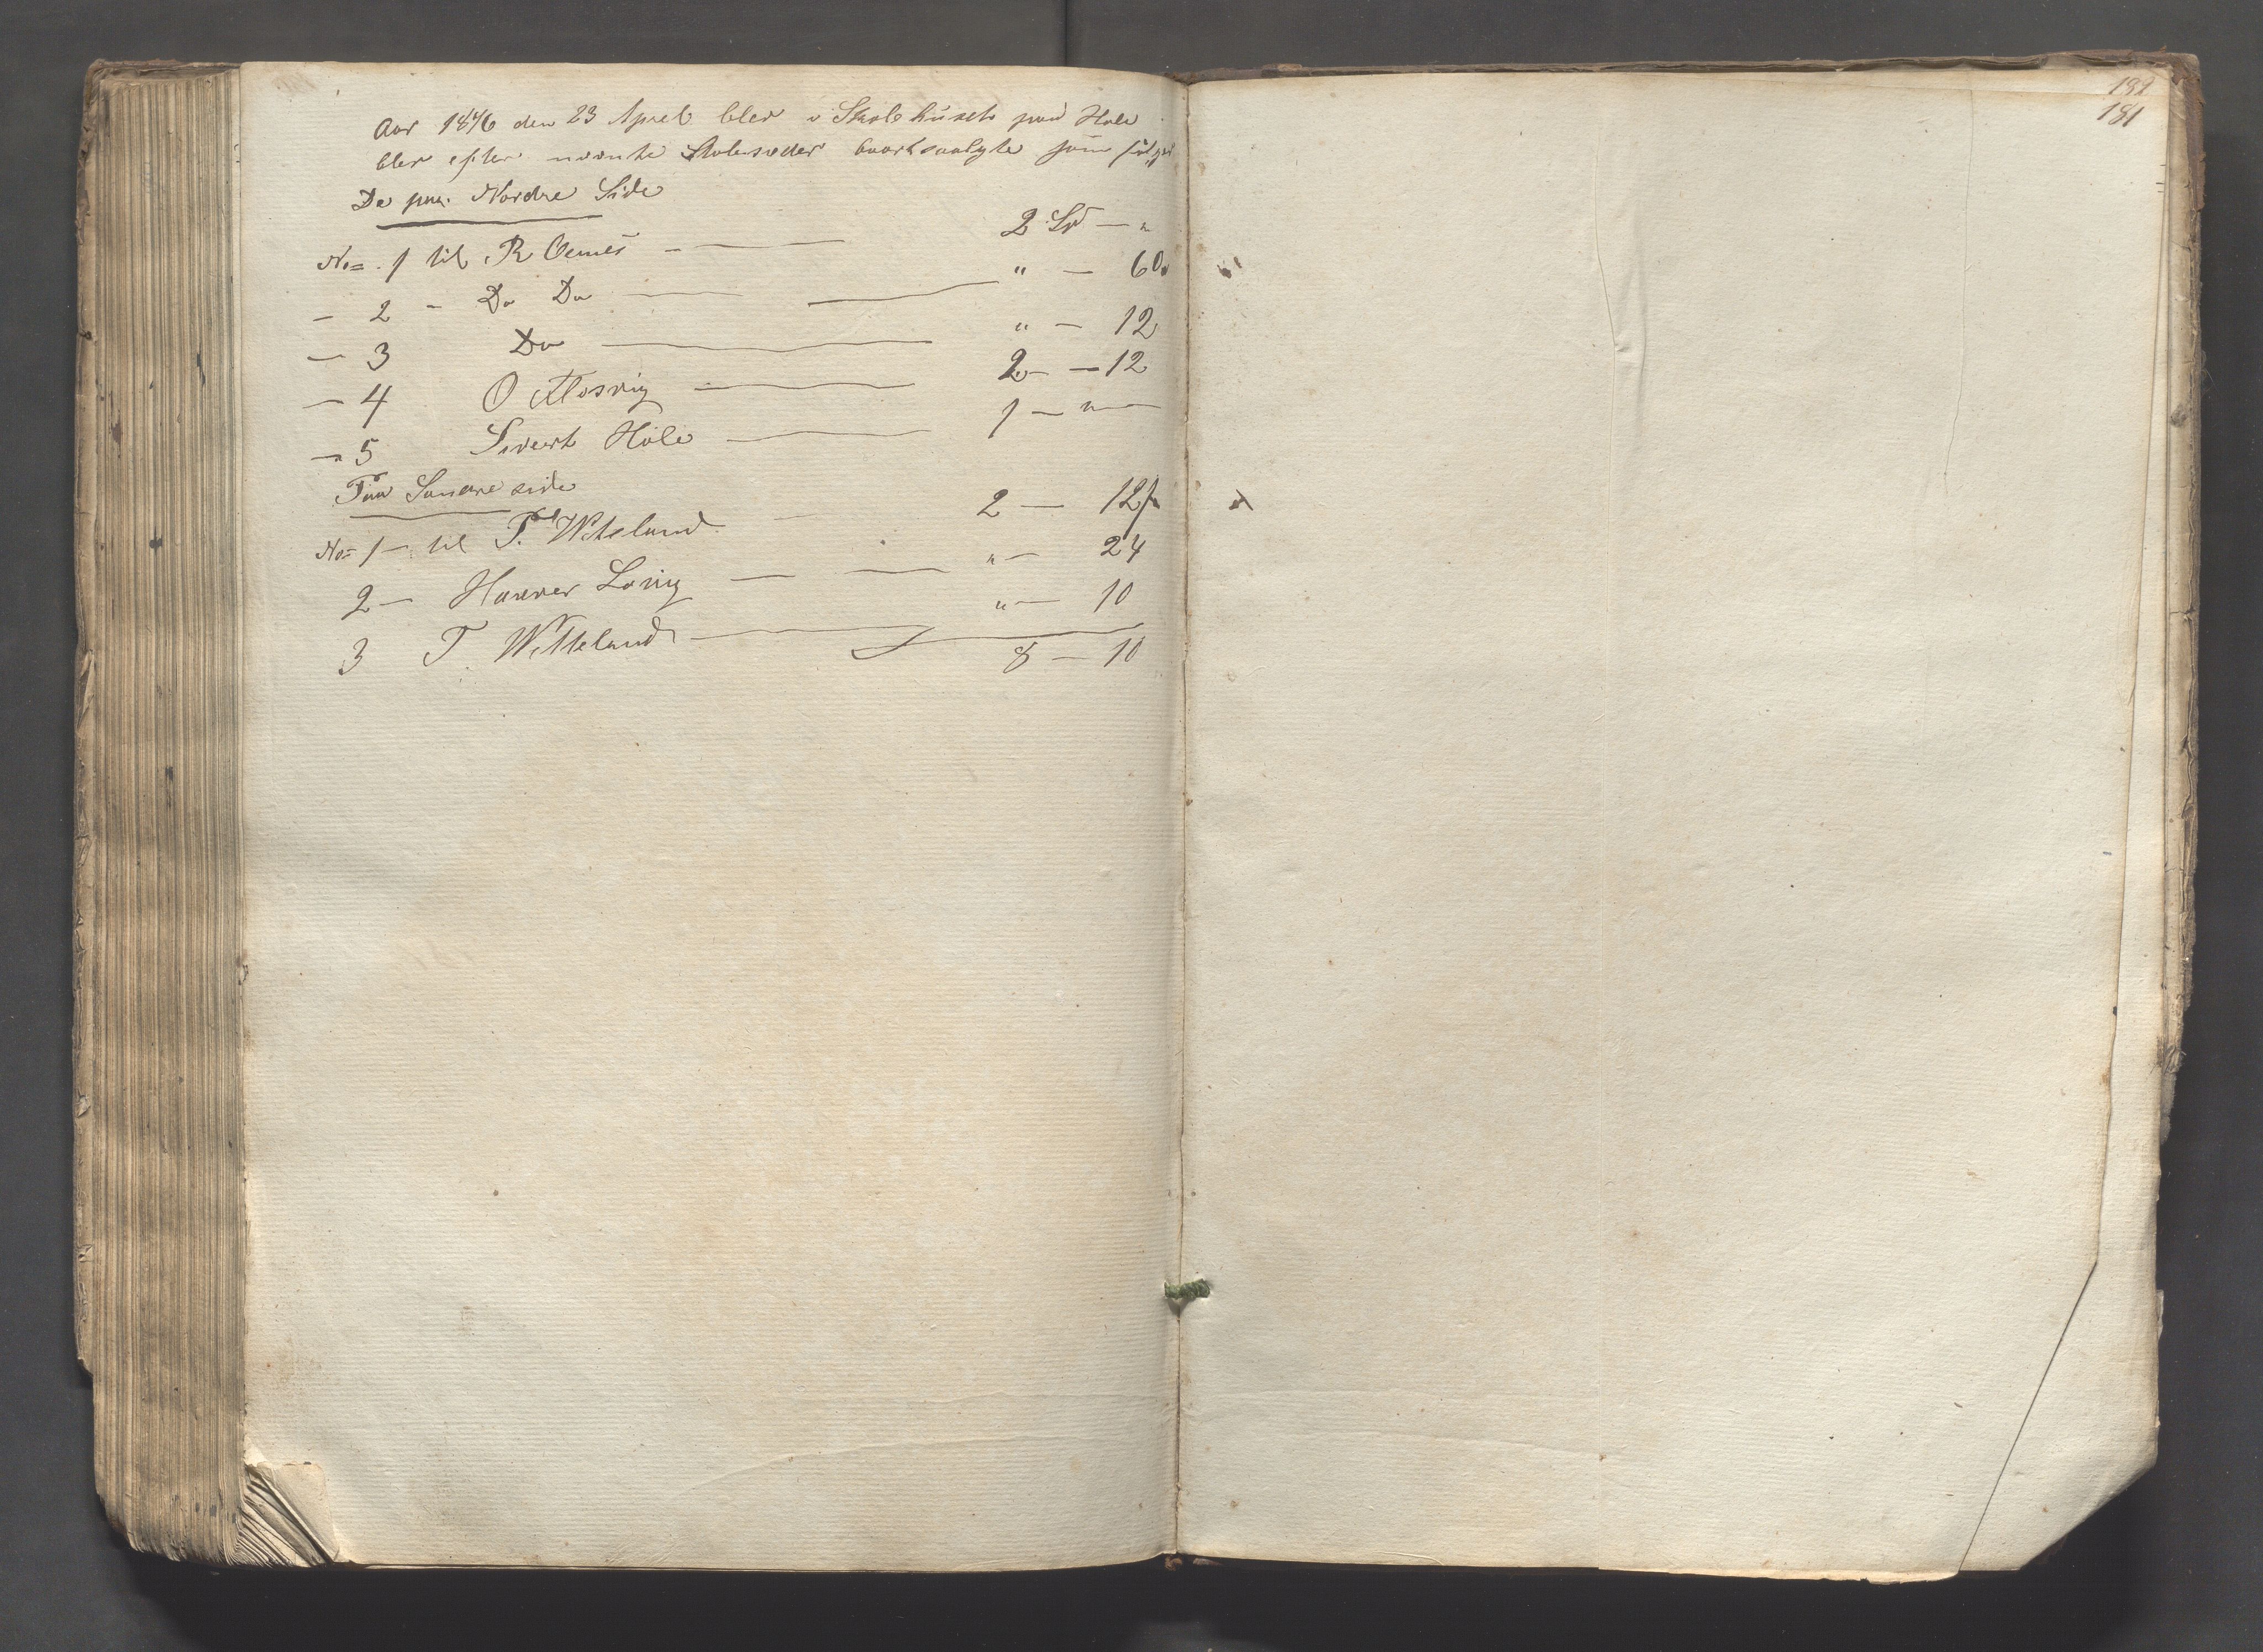 Aar 1876 den 23 April blev i Skolehuset paa Hole
blev efter nevnte Stolesæder bortsaalgte som følger
De paa Nordre Side
No= 1 til R Oenes — 2 Sp — "
— 2 — Do Do — " — 60
— 3 Do — " — 12
— 4 O Mosvig — 2 — 12
— 5 Sivert Hole — 1 — "
Paa Søndre side
No= 1 — til T. Witeland — 2 — 12
2 — Hanver Løvig — " — 24
3 T Witteland — " — 10
8 — 10
181